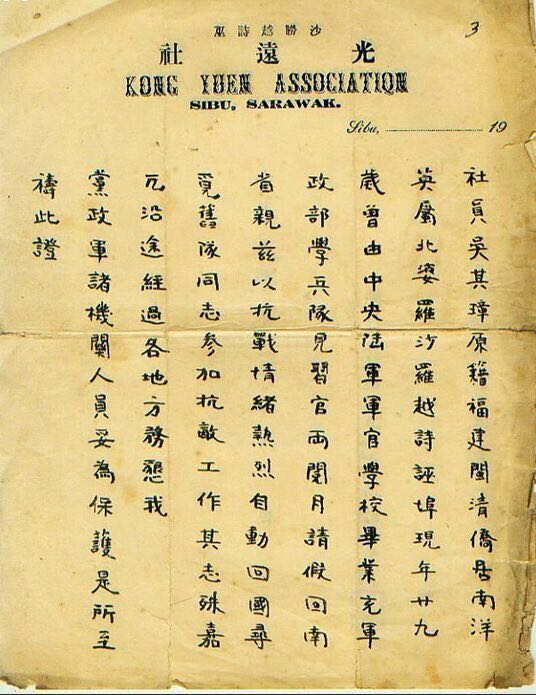 3
沙勝越詩巫
光遠社
KONG YUEN ASSOCIATION
SIBU, SARAWAK.
Sibu, 19
社員吳其璋原籍福建閩清僑居南洋
英屬北婆羅沙羅越詩誣埠現年廿九
歲曾由中央陸軍軍官學校畢業充軍
政部學兵隊見習官両閱月請假回南
省親茲以抗戰情緒熱烈自動回國尋
覓舊隊同志參加抗敵工作其志殊嘉
凡沿途經過各地方務懇我
黨政軍諸機關人員妥為保護是所至
禱此證